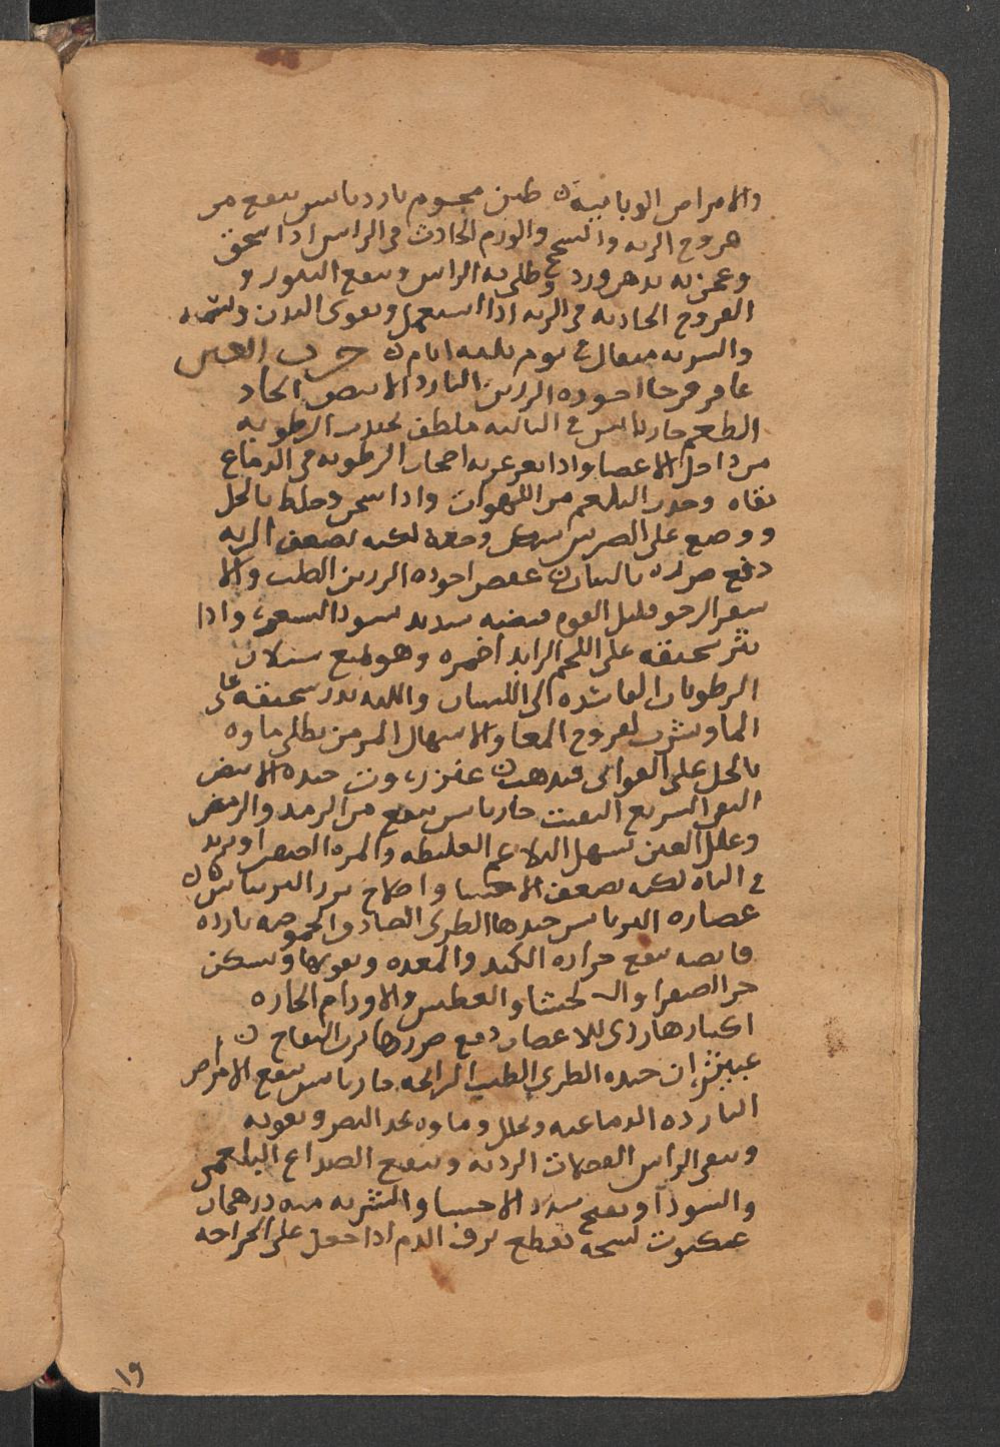 والامراض الوبايية ن طين مجوم بارد يابس ينفع من
قروح الريه والسحج والورم الحادث في الراس اذا سحق
وعجن به بدهن ورد وطلى به الراس وينفع البثور و
القروح الحادثه في الريه اذا استعمل ويقوى البدن
والشربه مثقال في يوم ثلثه ايام ن حرف العين
عاقر قرحا اجوده الرزين البارد الابيض الحاد
الطعم حار يابس في الثالثه ملطف يجذب الرطوبه
من داخل الاعضا واذا تغرغر به اصحاب الرطوبه في الدماغ
نقاه وحدر البلغم من اللهوات واذا سحق وخلط بالخل
ووضع على الضرس سكن وجعه لكنه يضعف الريه
دفع ضرره عفص اجوده الرزين الصلب والا
سفر الرخو قليل القوه قبضه شديد يسود الشعر واذا
نثر سحيقه على اللحم الزايد اضمره وهو يمنع سيلان
الرطوبات الفاسده الى اللسان واللثه يذر سحيقه على
الما ويشرب لقروح المعا والاسهال المزمن يطلى ماوه
بالخل على القوابى فيذهب ن عنزروت جيده الابيض
النقى السريع التفتت حار يابس ينفع من الرمد والرمص
وعلل العين يسهل البلاغم الغليظه والمره الصفرا ويزيد
في الباه لكنه يضعف الاحشا واصلاح
عصاره الريباس جيدها الطرى الصادق الحموضه بارده
قابضه ينفع حراره الكبد والمعده ويقويها ويسكن
حر الصفرا والعطش والاورام الحاره
اكثارها ردى للاعصاب دفع ضررها بزب التفاح ن
عبيثران جيده الطرى الطيب الرايحه حار يابس ينفع الامراض
البارده الدماغيه ويحلل وماوه يحد البصر ويقويه
وينقى الراس الفضلات الرديه وينفع الصداع البلغمى
والسوداوى ويفتح سدد الاحشا والشربه منه درهمان
عنكبوت نسجه يقطع نزف الدم اذا جعل على الجراحه